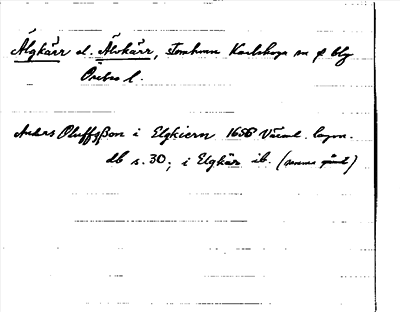 Älgkärr el. Älvkärr, Tomhem Karlskoga sn o blg
Örebro l.
Anders Oluffzßon i Elgkiern 1656 Värml. lagm.
db s. 30; i Elgkär ib. (samma gård)